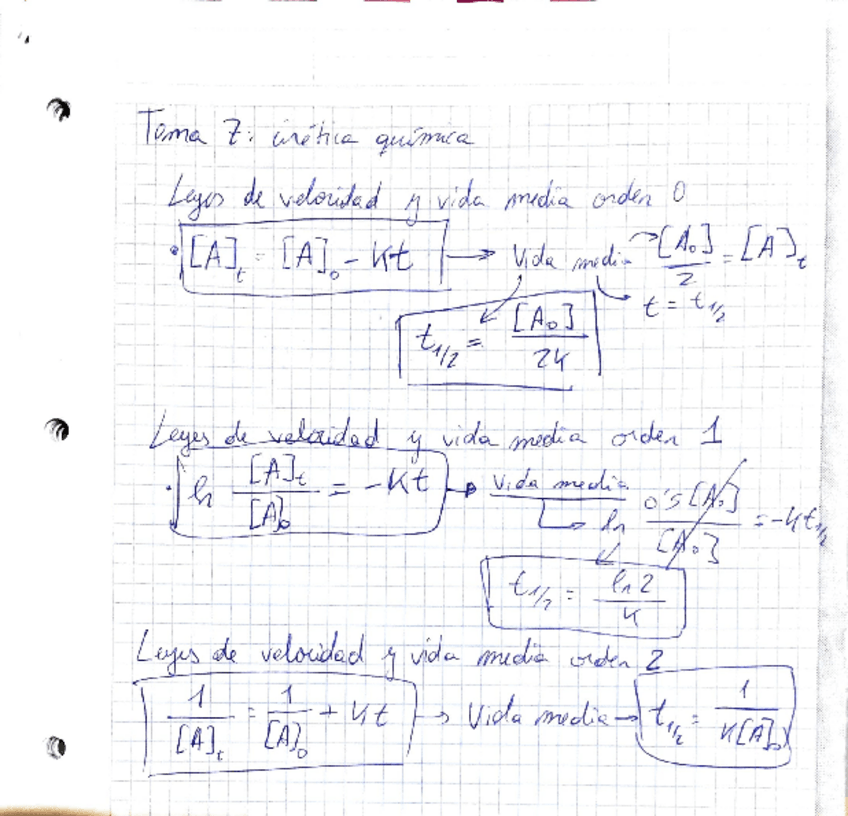 Tema 7: cinética química
Leyes de velocidad y vida media orden 0
• [A]t = [A]0 - Kt → Vida media → [A0]/2 = [A]t
t = t1/2
t1/2 = [A0]/2K
Leyes de velocidad y vida media orden 1
• ln [A]t/[A]0 = -Kt → Vida media
ln 0's [A0]/[A0] = -Kt1/2
t1/2 = ln 2/K
Leyes de velocidad y vida media orden 2
1/[A]t = 1/[A]0 + Kt → Vida media → t1/2 = 1/K[A]0